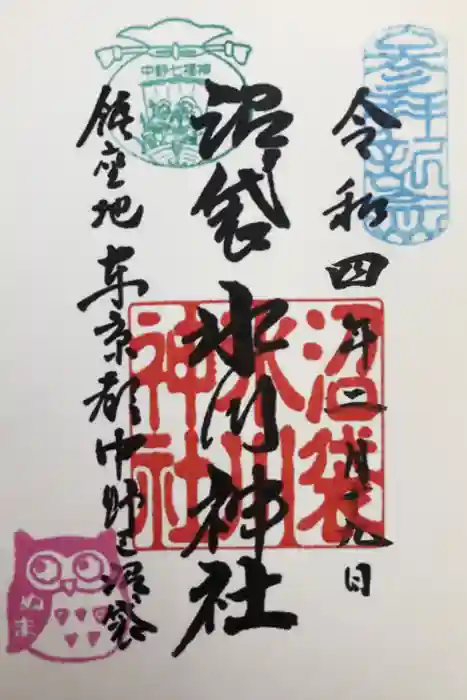 参拝記念
令和四年二月十九日
沼袋氷川神社
沼袋
氷川
神社
中野七福神
鎮座地東京都中野区沼袋
ぬま